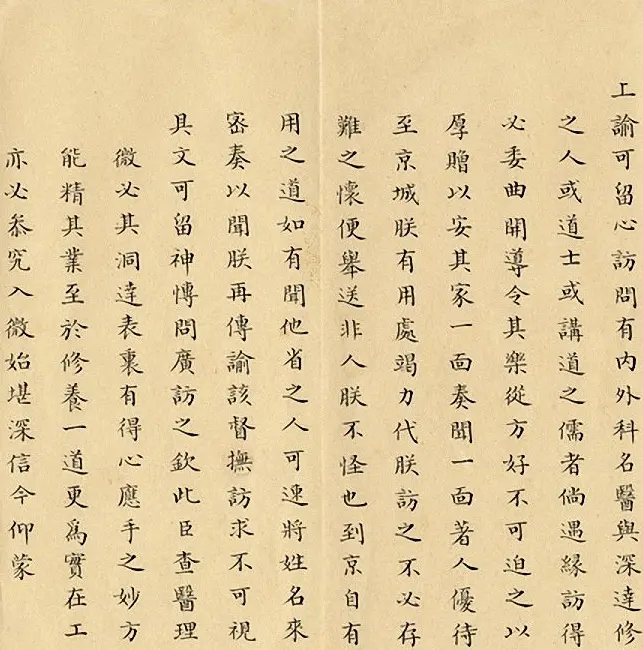 上諭可留心訪問有內外科名醫與深達修
之人或道士或講道之儒者倘遇緣訪得
必委曲開導令其樂從方好不可迫之以
厚贈以安其家一面奏聞一面著人優待
至京城朕有用處竭力代朕訪之不必存
難之懷便舉送非人朕不怪也到京自有
用之道如有聞他省之人可速將姓名來
密奏以聞朕再傳諭該督撫訪求不可視
具文可留神慱問廣訪之欽此臣查醫理
微必其洞達表裏有得心應手之妙方
能精其業至於修養一道更爲實在工
亦必叅究入微始堪深信今仰蒙